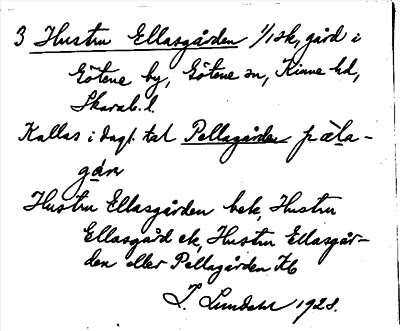 3 Hustru Ellasgården 1/1 sk, gård i
Götene by, Götene sn, Kinne hd,
Skarab. l.
Kallas i dagl. tal Pellagården pæla-
gán
Hustru Ellasgården bek, Hustru
Ellasgård ek, Hustru Ellasgår-
den eller Pellagården Kb
I. Lundahl 1928.